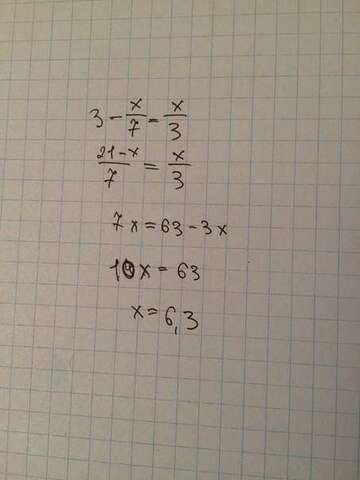 3 - x/7 = x/3
21-x/7 = x/3
7x = 63 - 3x
10x = 63
x = 6,3